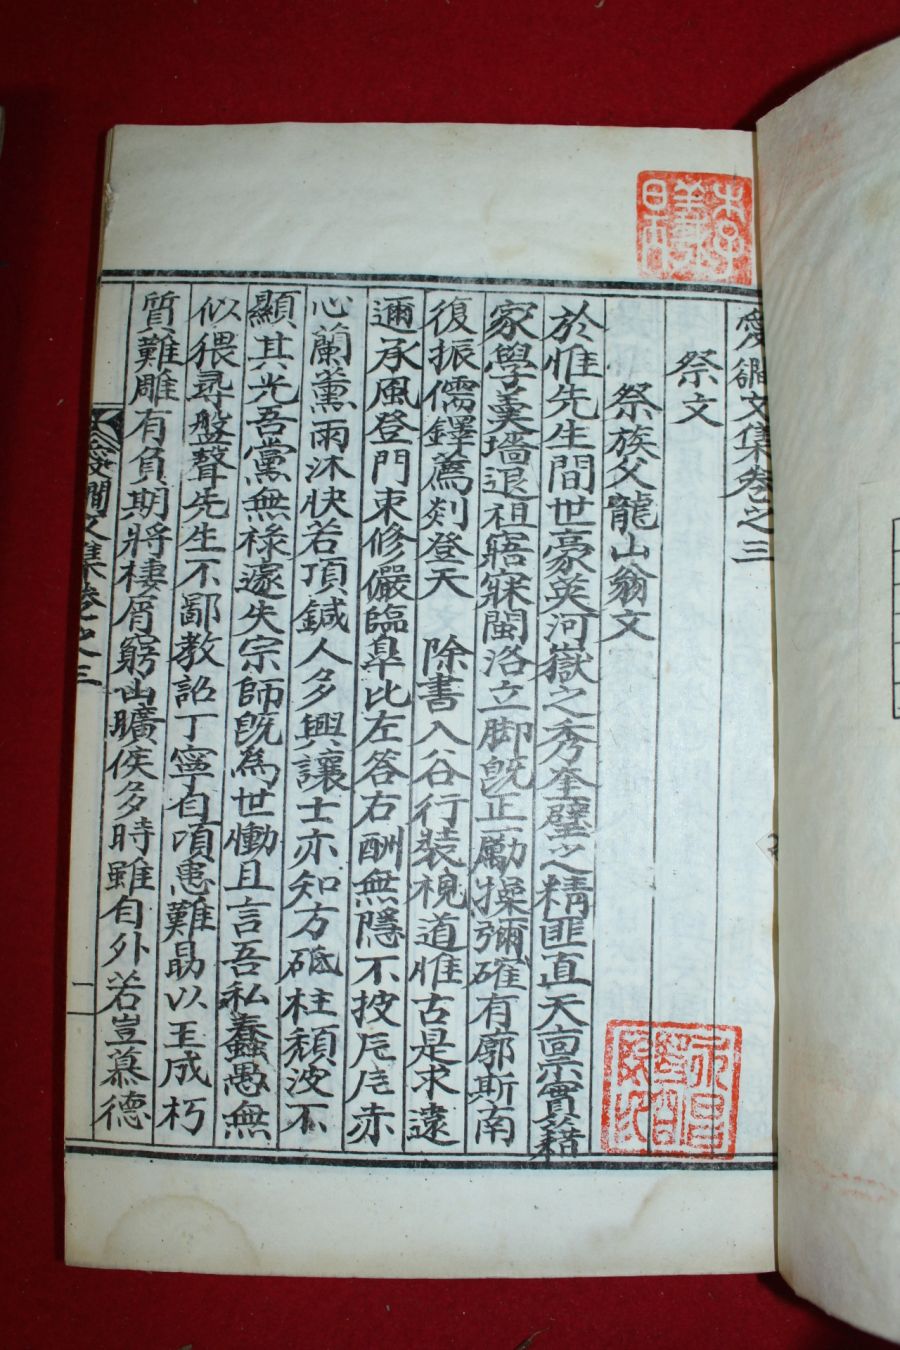 愛磵文集卷之三
祭文
祭族父龍山翁文
於惟先生間世豪英河嶽之秀奎璧之精匪直天禀寔籍
家學羹墻退祖寤寐閩洛立脚旣正勵操彌確有廓斯南
復振儒鐸薦剡登天 除書入谷行裝槐道惟古是求遠
邇承風登門束修儼臨臯比左答右酬無隱不披咫尺赤
心蘭薰雨沐快若頂鍼人多興讓士亦知方砥柱頹波不
顯其光吾黨無祿遽失宗師旣爲世慟且言吾私蠢蠢愚無
似猥尋盤聲先生不鄙敎詔丁寧自項患難勗以玉成朽
質難雕有負期將棲屑窮山曠候多時雖自外若豈慕德
磵文集卷之三
一